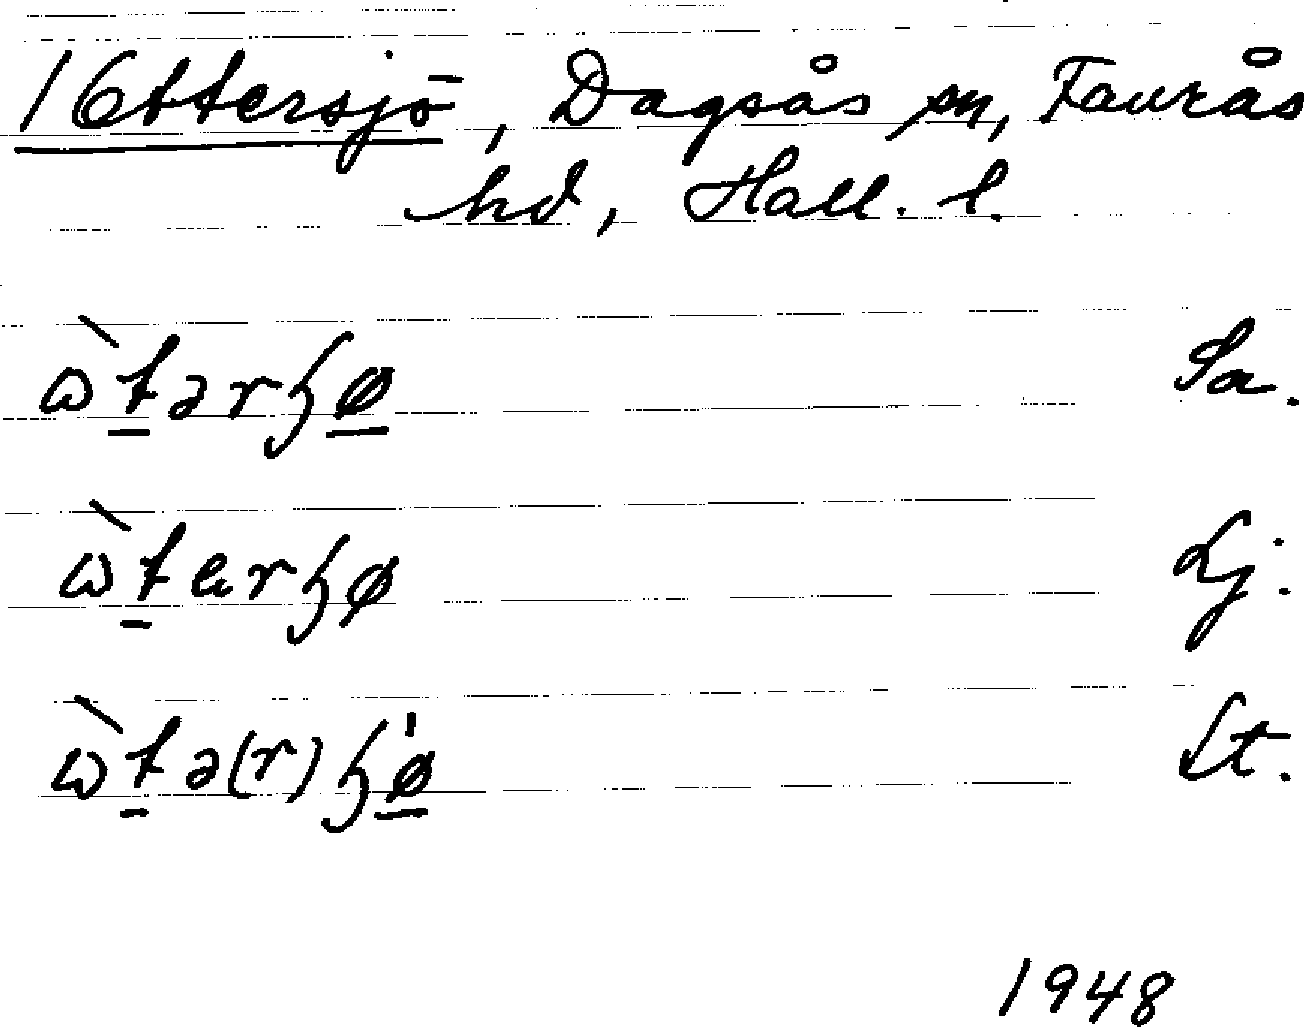 1 Ottersjö, Dagsås sn, Faurås
hd, Hall. l.
ὼtərɧø Sa.
ὼtarɧø Lj.
ὼtə(r)ɧø St.
1948